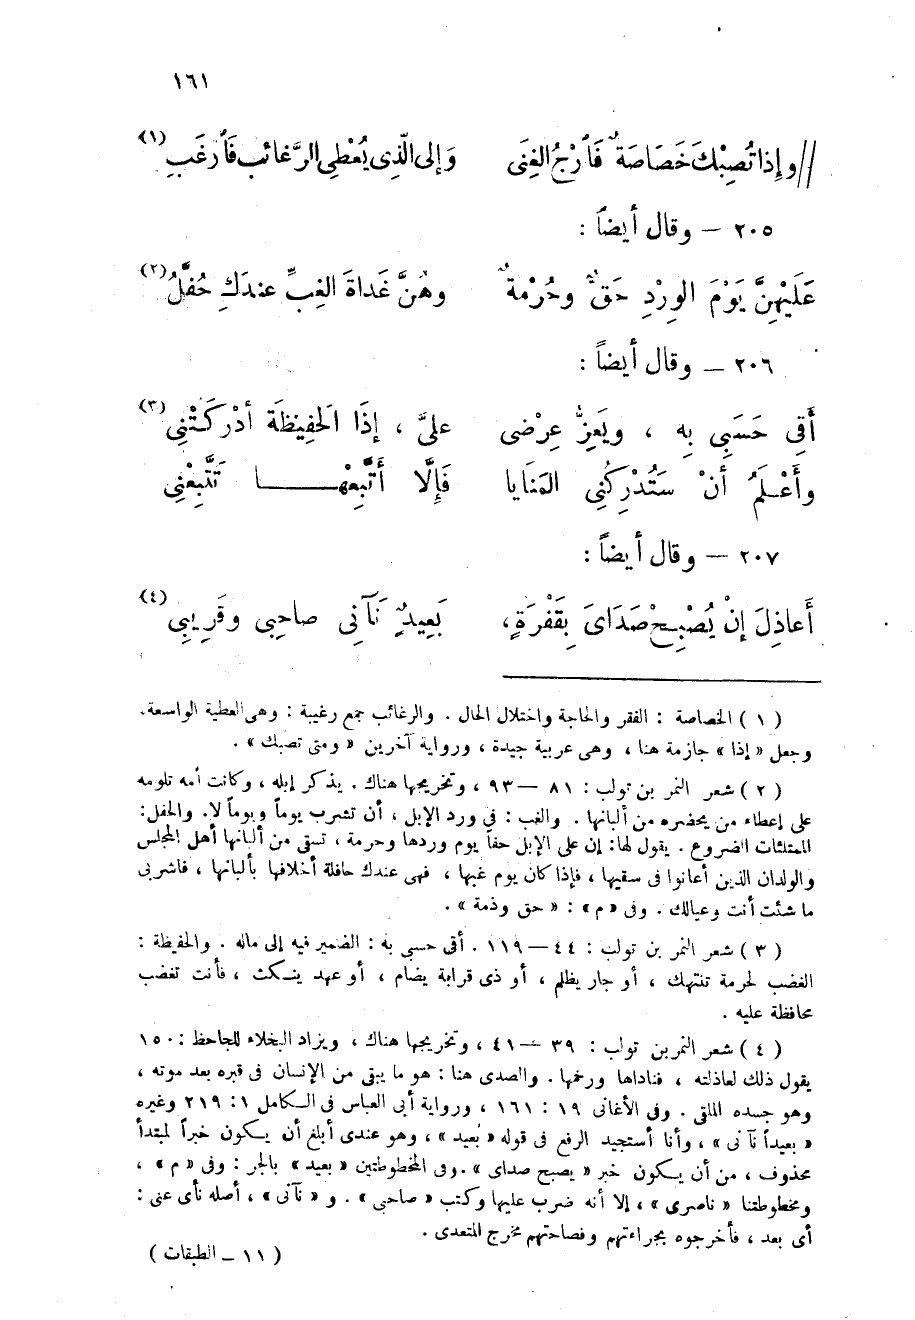 ١٦١
// وإِذا تُصِبْكَ خَصَاصَةٌ فَأرْجُ الغِنَى وَإِلى الَّذِى يُعْطِى الرَّغائبَ فَأرغَبِ (١)
٢٠٥ — وقال أيضاً :
عَلَيْهِنَّ يَوْمَ الوِرْدِ حَقٌّ وحُرْمةٌ وهُنَّ غَداةَ الغِبِّ عندَكِ حُفَّلُ (٢)
٢٠٦ — وقال أيضاً :
أَقِى حَسَبِى بِه ، ويَعِزُّ عِرْضى علىَّ ، إِذَا الحَفِيظَة أدْرَكَتْنِى (٣)
وأَعْلَمُ أنْ سَتُدْرِكُنِى المَنَايا فَإِلَّا أَتَّبِعْها تَتَّبِعْنِى
٢٠٧ — وقال أيضاً :
أَعاذِلَ إنْ يُصْبِحْ صَدَاىَ بِقَفْرَةٍ، بَعِيدٌ نَآنِى صاحِبِى وقَرِيبِى (٤)
( ١ ) الخصاصة : الفقر والحاجة واختلال الحال . والرغائب جمع رغيبة : وهى العطية الواسعة.
وجعل « إذا » جازمة هنا ، وهى عربية جيدة ، ورواية آخرين « ومتى تصبك » .
( ٢ ) شعر النمر بن تولب : ٨١ — ٩٣ ، وتخريجها هناك. يذكر إبله ، وكانت أمه تلومه
على إعطاء من يحضره من ألبانها . والغب : فى ورد الإبل ، أن تشرب يوماً ويوماً لا. والحفل:
الممتلئات الضروع . يقول لها: إن على الإبل حقاً يوم وردها وحرمة ، تسقى من ألبانها أهل المجلس
والولدان الذين أعانوا فى سقيها ، فإذا كان يوم غبها ، فهى عندك حافلة أخلافها بألبانها ، فاشربى
ما شئت أنت وعيالك . وفى « م » : « حق وذمة » .
( ٣ ) شعر النمر بن تولب : ٤٤ — ١١٩ . أقى حسبى به : الضمير فيه إلى ماله . والحفيظة :
الغضب لحرمة تنتهك ، أو جار يظلم ، أو ذى قرابة يضام ، أو عهد ينكث ، فأنت تغضب
محافظة عليه .
( ٤ ) شعر النمر بن تولب : ٣٩ — ٤١ ، وتخريجها هناك ، ويزاد البخلاء للجاحظ : ١٥٠
يقول ذلك لعاذلته ، فناداها ورخمها . والصدى هنا : هو ما يبقى من الإنسان فى قبره بعد موته ،
وهو جسده الملقى . وفى الأغانى ١٩ : ١٦١ ، ورواية أبى العباس فى الكامل ١ : ٢١٩ وغيره
« بعيداً نآنى » ، وأنا أستجيد الرفع فى قوله « بَعيد » ، وهو عندى أبلغ أن يكون خبراً لمبتدأ
محذوف ، من أن يكون خبر « يصبح صداى » . وفى المخطوطتين « بعيد » بالجر : وفى « م » ،
ومخطوطتنا « ناصرى » ، إلا أنه ضرب عليها وكتب « صاحبى » . و « نآنى » ، أصله نأى عنى :
أى بعد ، فأخرجوه بجراءتهم وفصاحتهم مخرج المتعدى .
( ١١ — الطبقات )